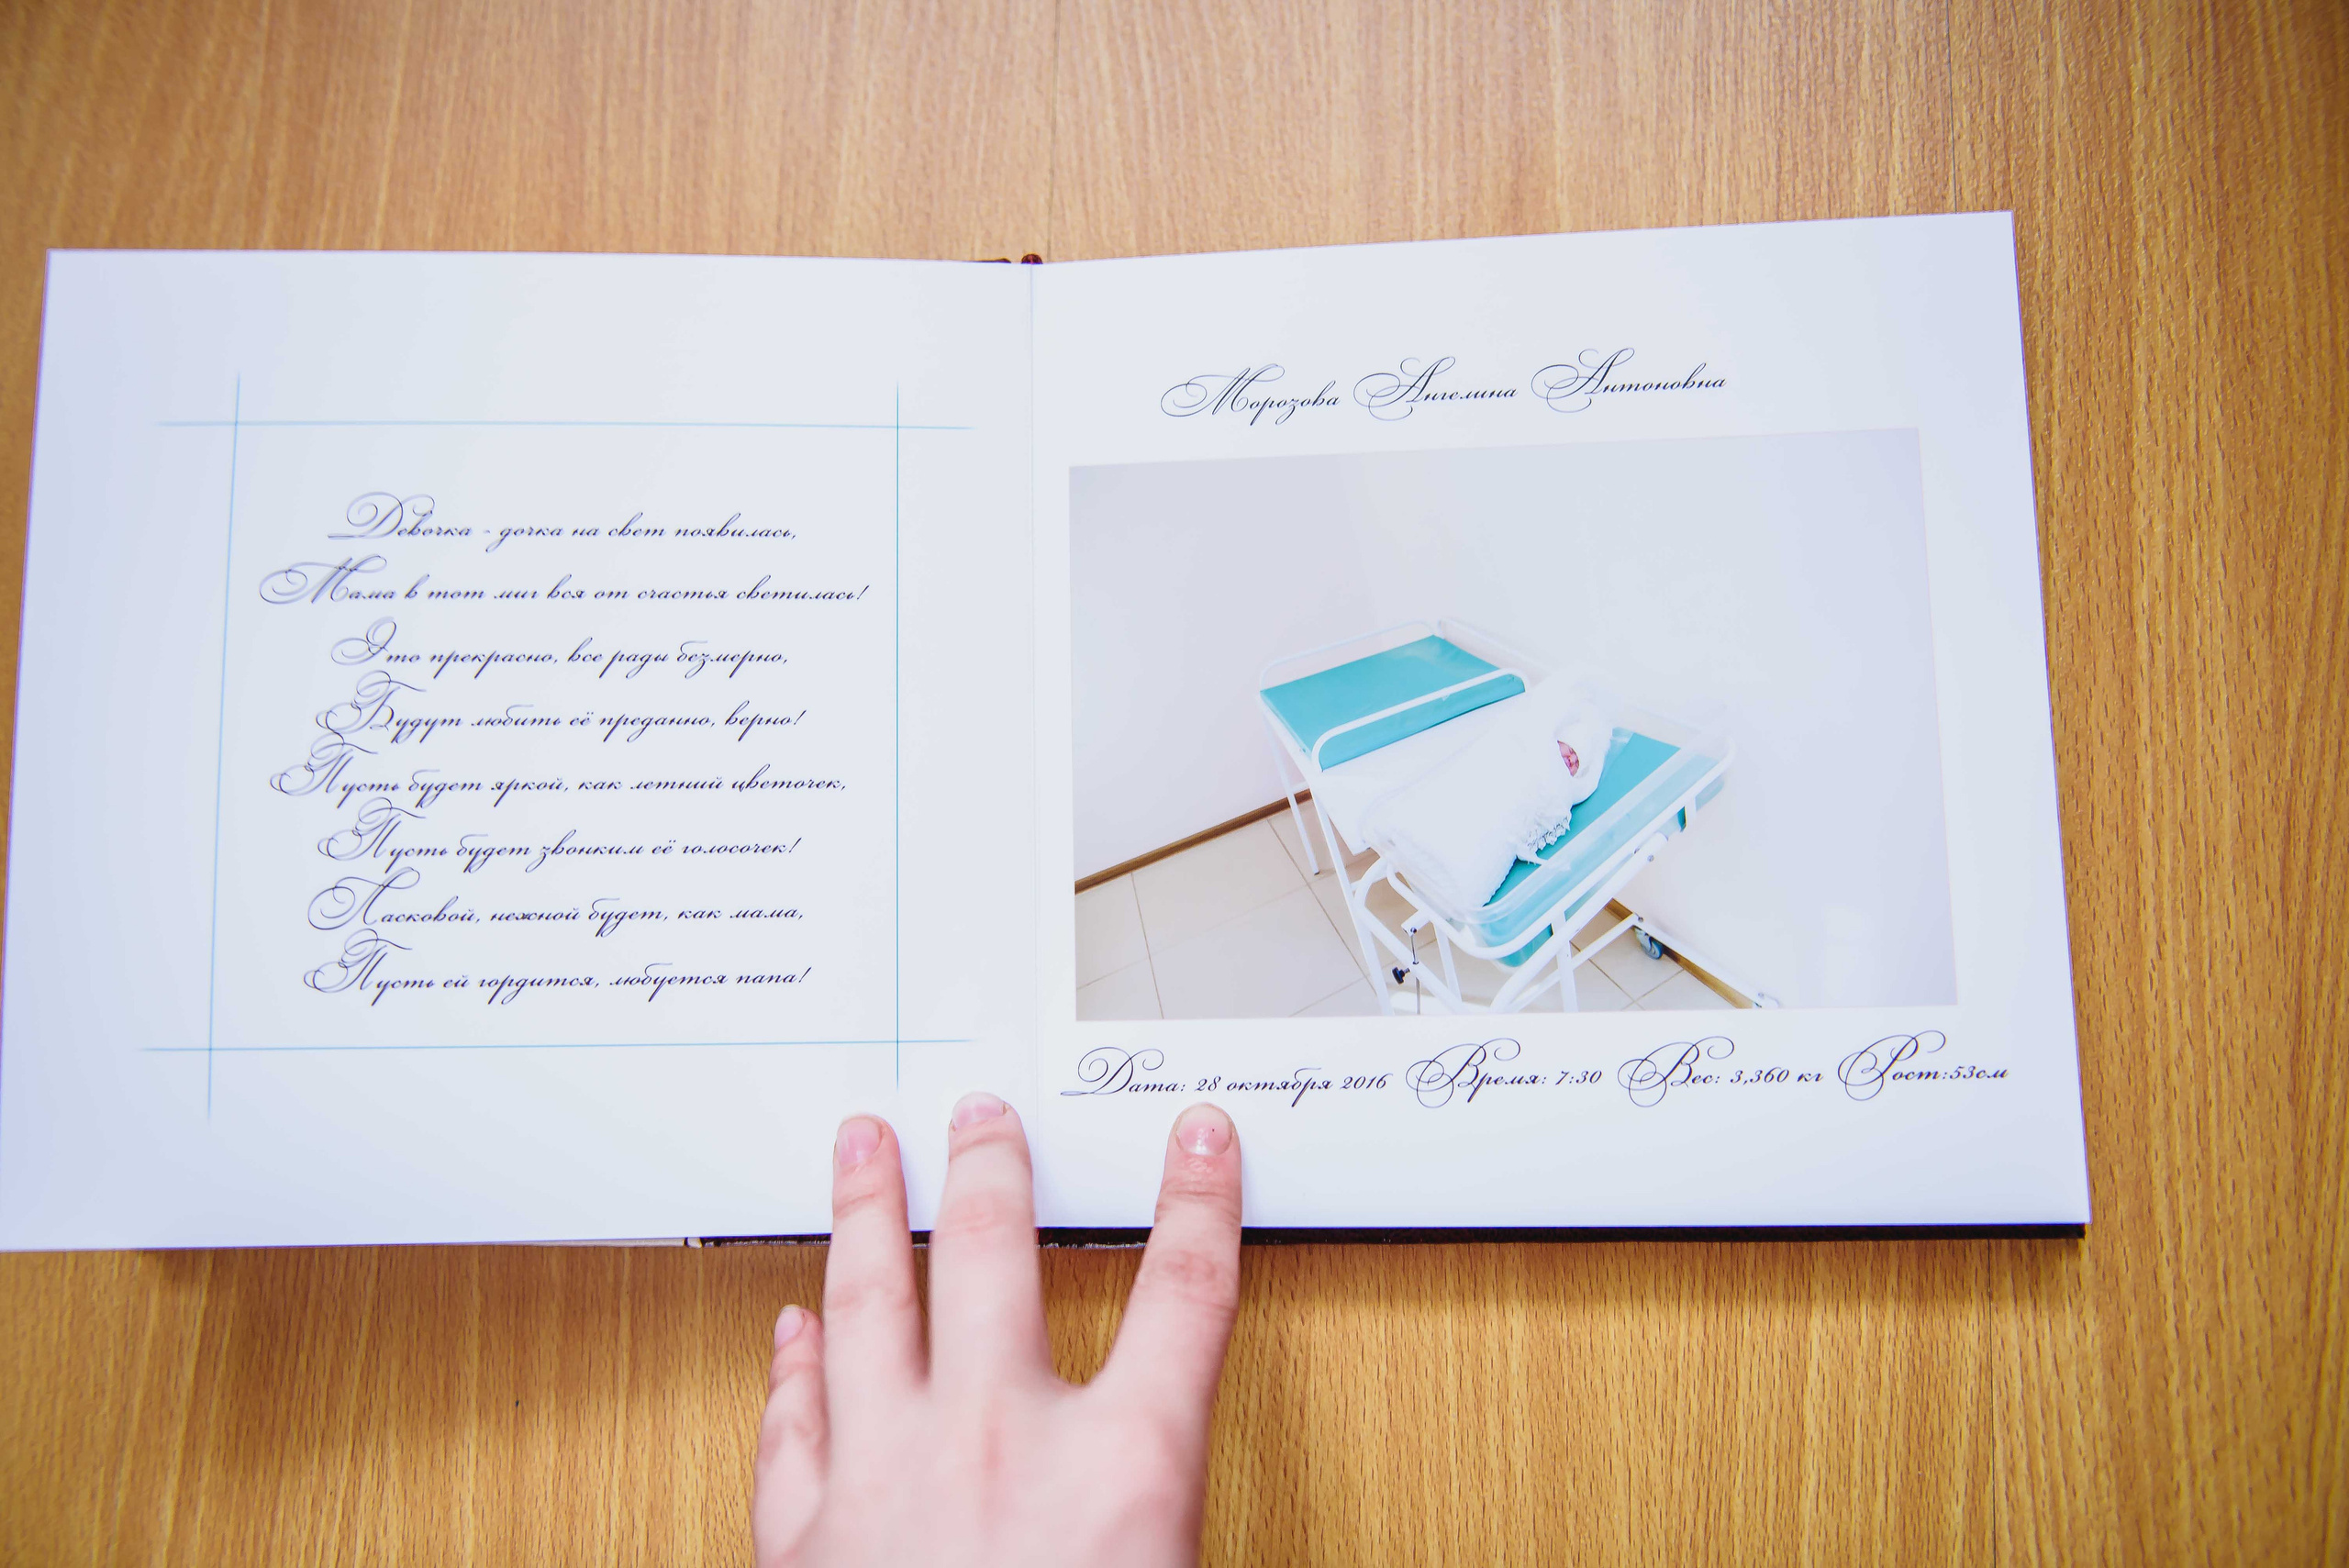 Девочка - дочка на свет появилась,
Мама в тот миг вся от счастья светилась!
Это прекрасно, все рады безмерно,
Будут любить её преданно, верно!
Пусть будет яркой, как летний цветочек,
Пусть будет звонким её голосочек!
Ласковой, нежной будет, как мама,
Пусть ей гордится, любуется папа!
Морозова Ангелина Антоновна
Дата: 28 октября 2016 Время: 7:30 Вес: 3,360 кг Рост:53см